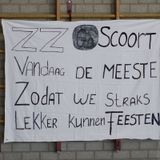 ZZ SCOORT
VANDAAG DE MEESTE
ZODAT WE STRAKS
LEKKER KUNNEN FEESTEN